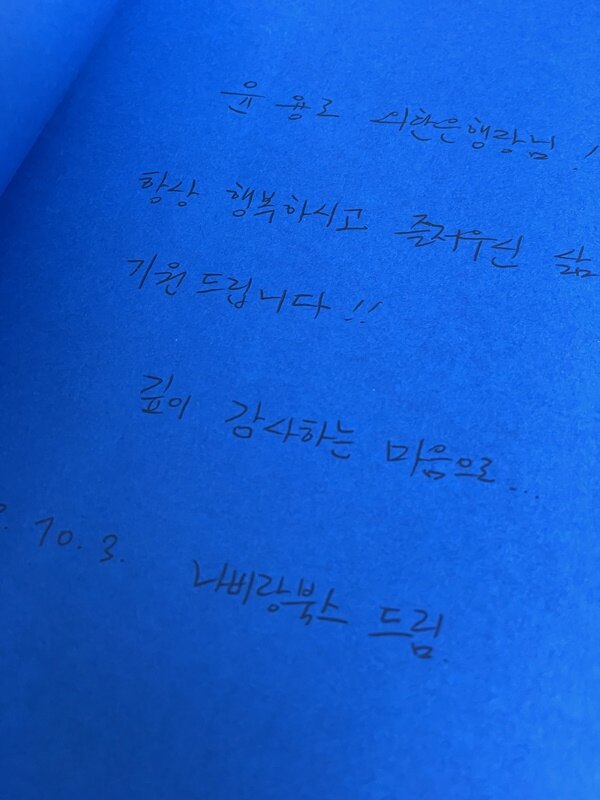 윤용로 외환은행장님!
항상 행복하시고 즐거우신 삶
기원드립니다!!
깊이 감사하는 마음으로...
10. 3.
나비랑북스 드림.